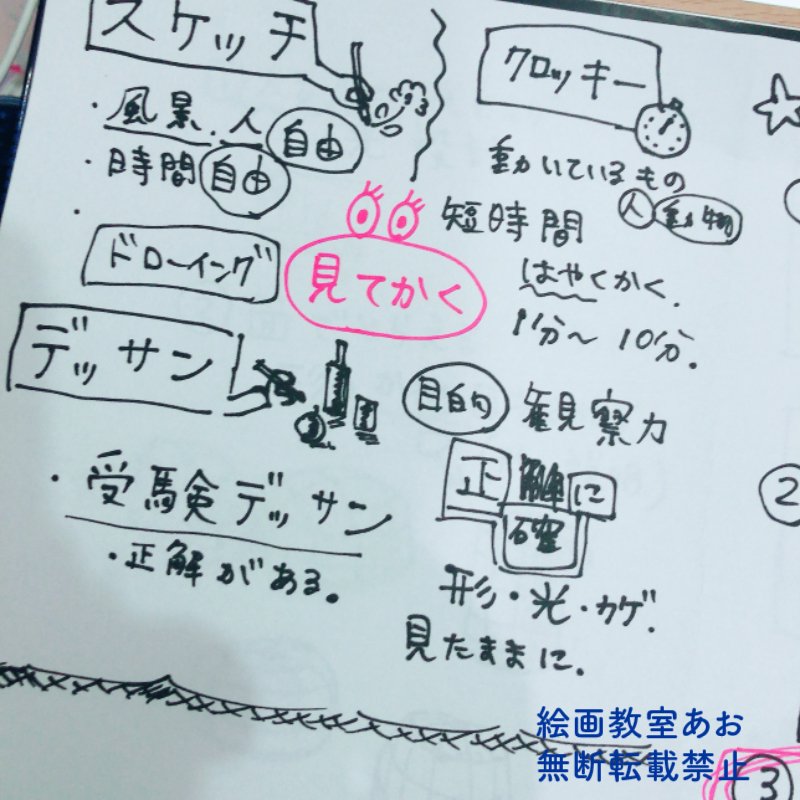 スケッチ
・風景.人 自由
・時間 自由
・
ドローイング
見てかく
クロッキー
動いているもの
人 動物
短時間
はやくかく.
1分〜10分.
デッサン
・受験デッサン
・正解がある。
目的 観察力
正解に
確
形・光・カゲ.
見たままに.
②
③
絵画教室あお
無断転載禁止